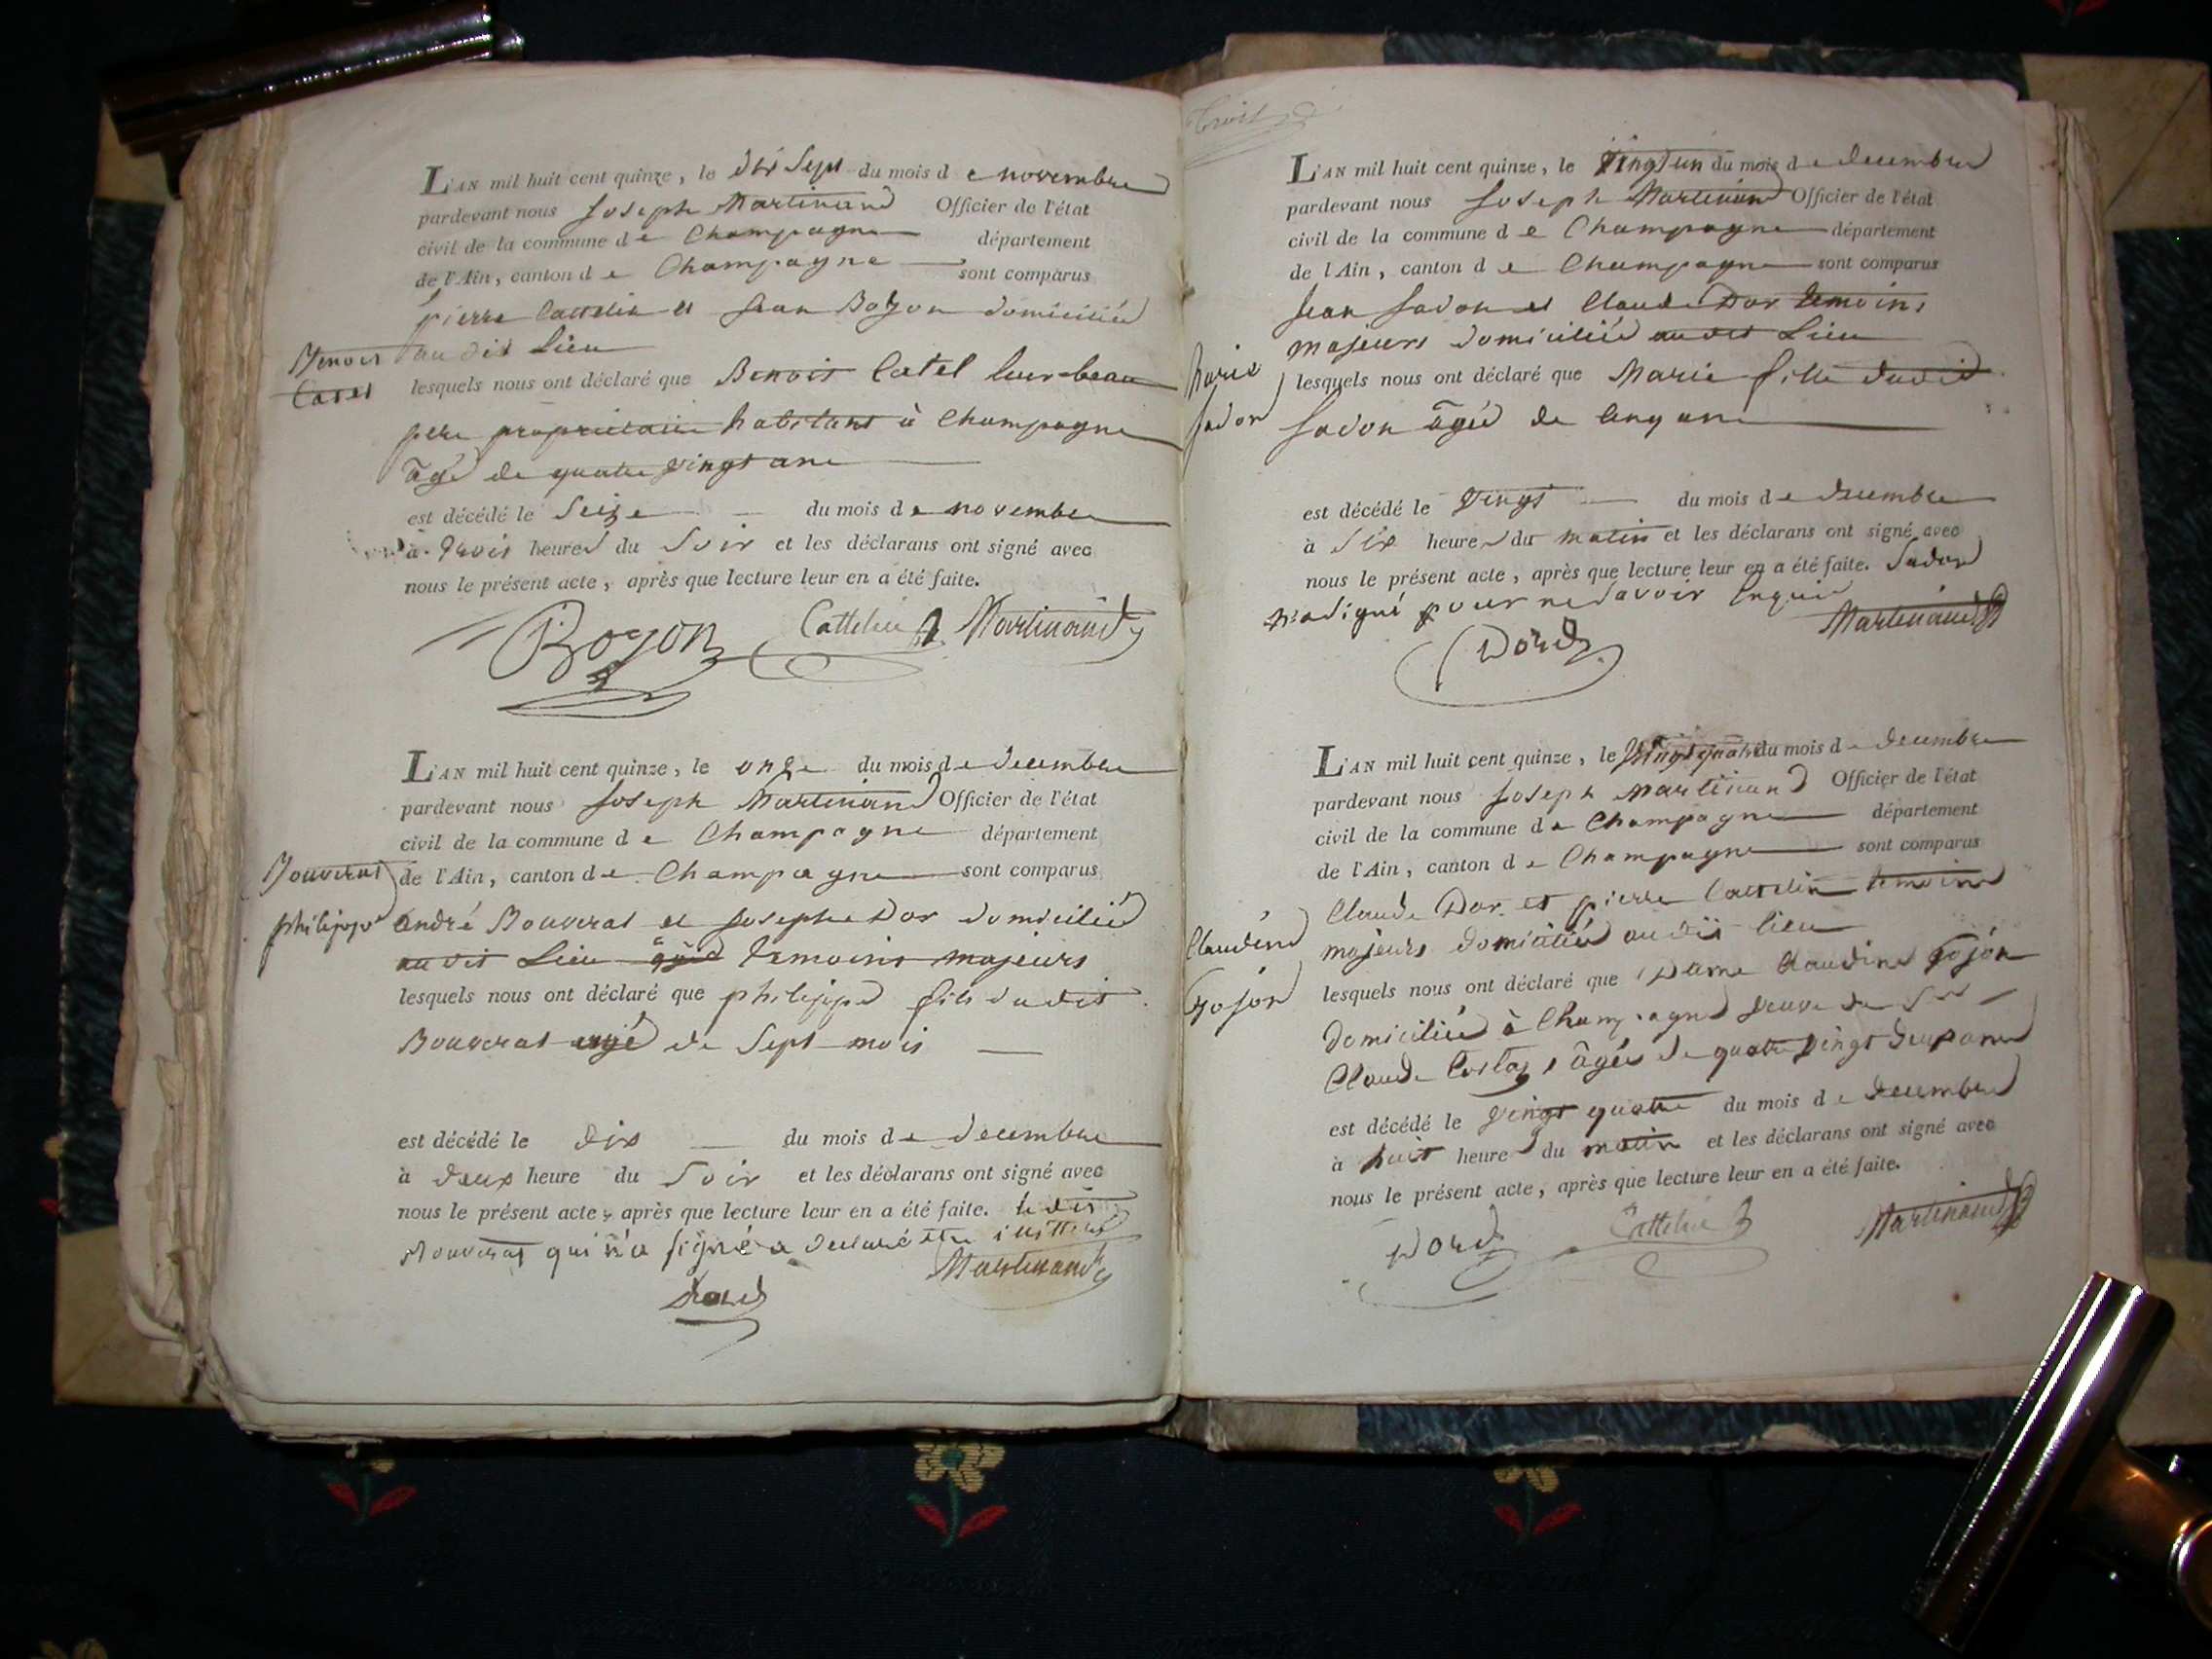 L'AN mil huit cent quinze, le dix Sept du mois de novembre
pardevant nous Joseph Martinand Officier de l'état
civil de la commune de Champagne département
de l'Ain, canton de Champagne sont comparus
pierre Cattelin et Jean Bozon domiciliés
au dit Lieu
Benoit
Catel
lesquels nous ont déclaré que Benoit Catel leur beau
pere propriétaire habitant à Champagne
âgé de quatre vingt ans
est décédé le Seize du mois de novembre
à trois heures du Soir et les déclarans ont signé avec
nous le présent acte, après que lecture leur en a été faite.
Bozon Cattelin Martinand
L'AN mil huit cent quinze, le onze du mois de decembre
pardevant nous Joseph Martinand Officier de l'état
civil de la commune de Champagne département
Bouverat
philippe
de l'Ain, canton de Champagne sont comparus
André Bouverat et Joseph Dor domiciliés
au dit Lieu témoins majeurs
lesquels nous ont déclaré que philippe fils du dit
Bouverat agé de Sept mois
est décédé le dix du mois de decembre
à deux heure du Soir et les déclarans ont signé avec
nous le présent acte, après que lecture leur en a été faite. le dit
Bouverat qui n'a signé a declaré etre illitteré
Martinand
Dord
L'AN mil huit cent quinze, le vingt un du mois de decembre
pardevant nous Joseph Martinand Officier de l'état
civil de la commune de Champagne département
de l'Ain, canton de Champagne sont comparus
Jean Sadon et Claude Dor temoins
majeurs domiciliés au dit Lieu
Marie
Sadon
lesquels nous ont déclaré que Marie fille du dit
Sadon âgée de cinq ans
est décédé le vingt du mois de decembre
à Six heures du matin et les déclarans ont signé avec
nous le présent acte, après que lecture leur en a été faite. Sadon
n'a signé pour ne savoir enquis
Martinand
Dord
L'AN mil huit cent quinze, le vingt quatre du mois de decembre
pardevant nous Joseph Martinand Officier de l'état
civil de la commune de Champagne département
de l'Ain, canton de Champagne sont comparus
Claude Dor et pierre Cattelin temoins
majeurs domiciliés au dit lieu
Claudine
Gojon
lesquels nous ont déclaré que Dame Claudine Gojon
domiciliée à Champagne veuve de Sr
Claude Costaz âgée de quatre vingt deux ans
est décédé le vingt quatre du mois de decembre
à huit heures du matin et les déclarans ont signé avec
nous le présent acte, après que lecture leur en a été faite.
Dord Cattelin Martinand